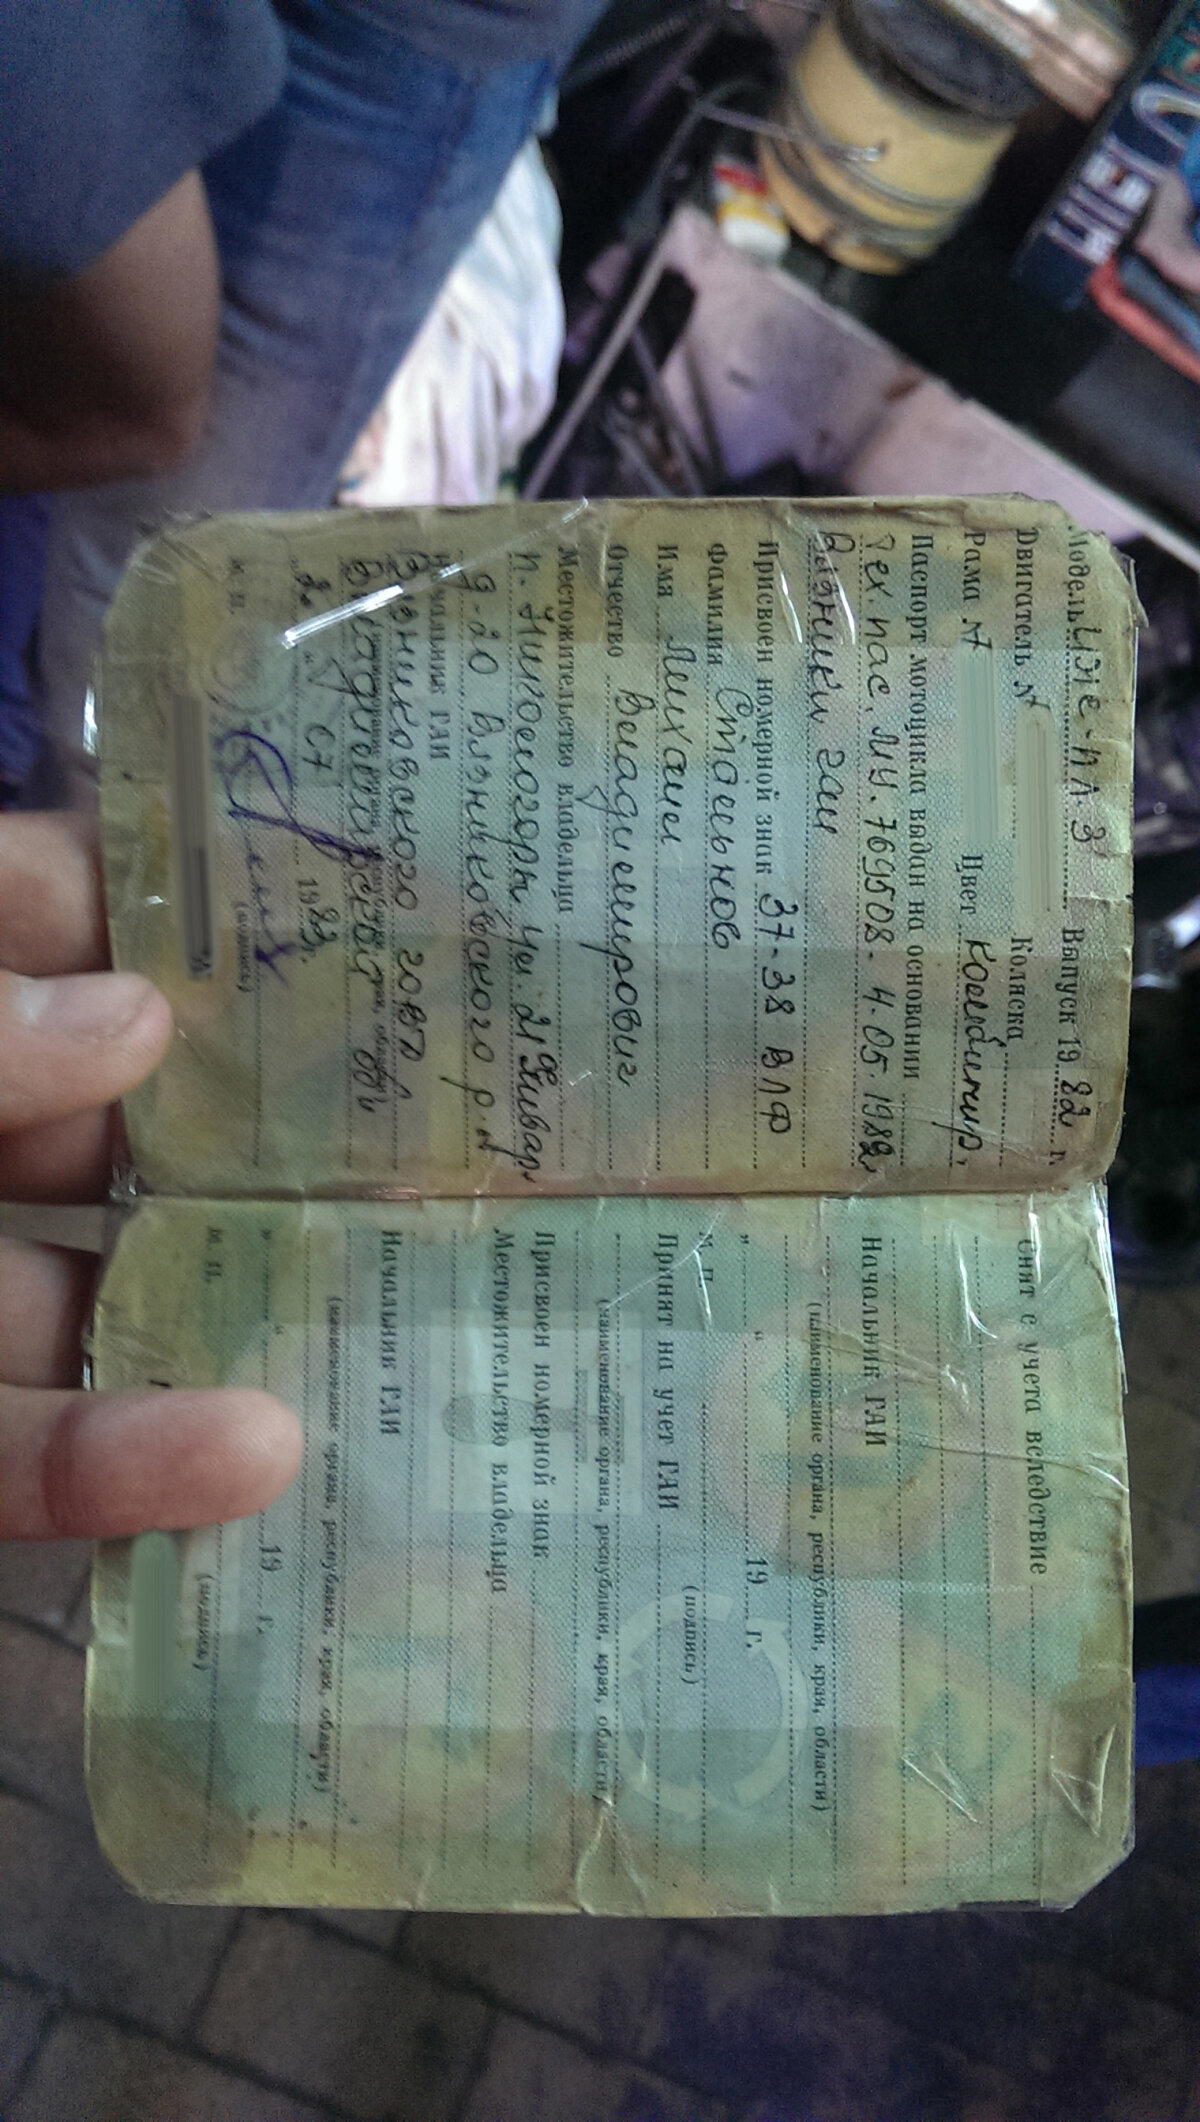 Модель Иж-ПЛ 3 Выпуск 1982 г.
Двигатель № Коляска
Рама № Цвет Комбинир.
Паспорт мотоцикла выдан на основании
Тех. пас. МУ. 769508 - 4.05.1982
Вязники гаи
Присвоен номерной знак 37-38 ВЛФ
Фамилия Стальнов
Имя Михаил
Отчество Владимирович
Местожительство владельца
п. Никологоры ул. 2я
д-20 Вязниковского р.н
Начальник ГАИ
Вязниковского РОВД
Владимирской обл
07 1982 г.
М. П. (подпись)
Снят с учета вследствие
Начальник ГАИ
(наименование органа, республики, края, области)
„ “ 19 г.
М. П. (подпись)
Принят на учет ГАИ
(наименование органа, республики, края, области)
Присвоен номерной знак
Местожительство владельца
Начальник ГАИ
(наименование органа, республики, края, области)
„ “ 19 г.
М. П. (подпись)